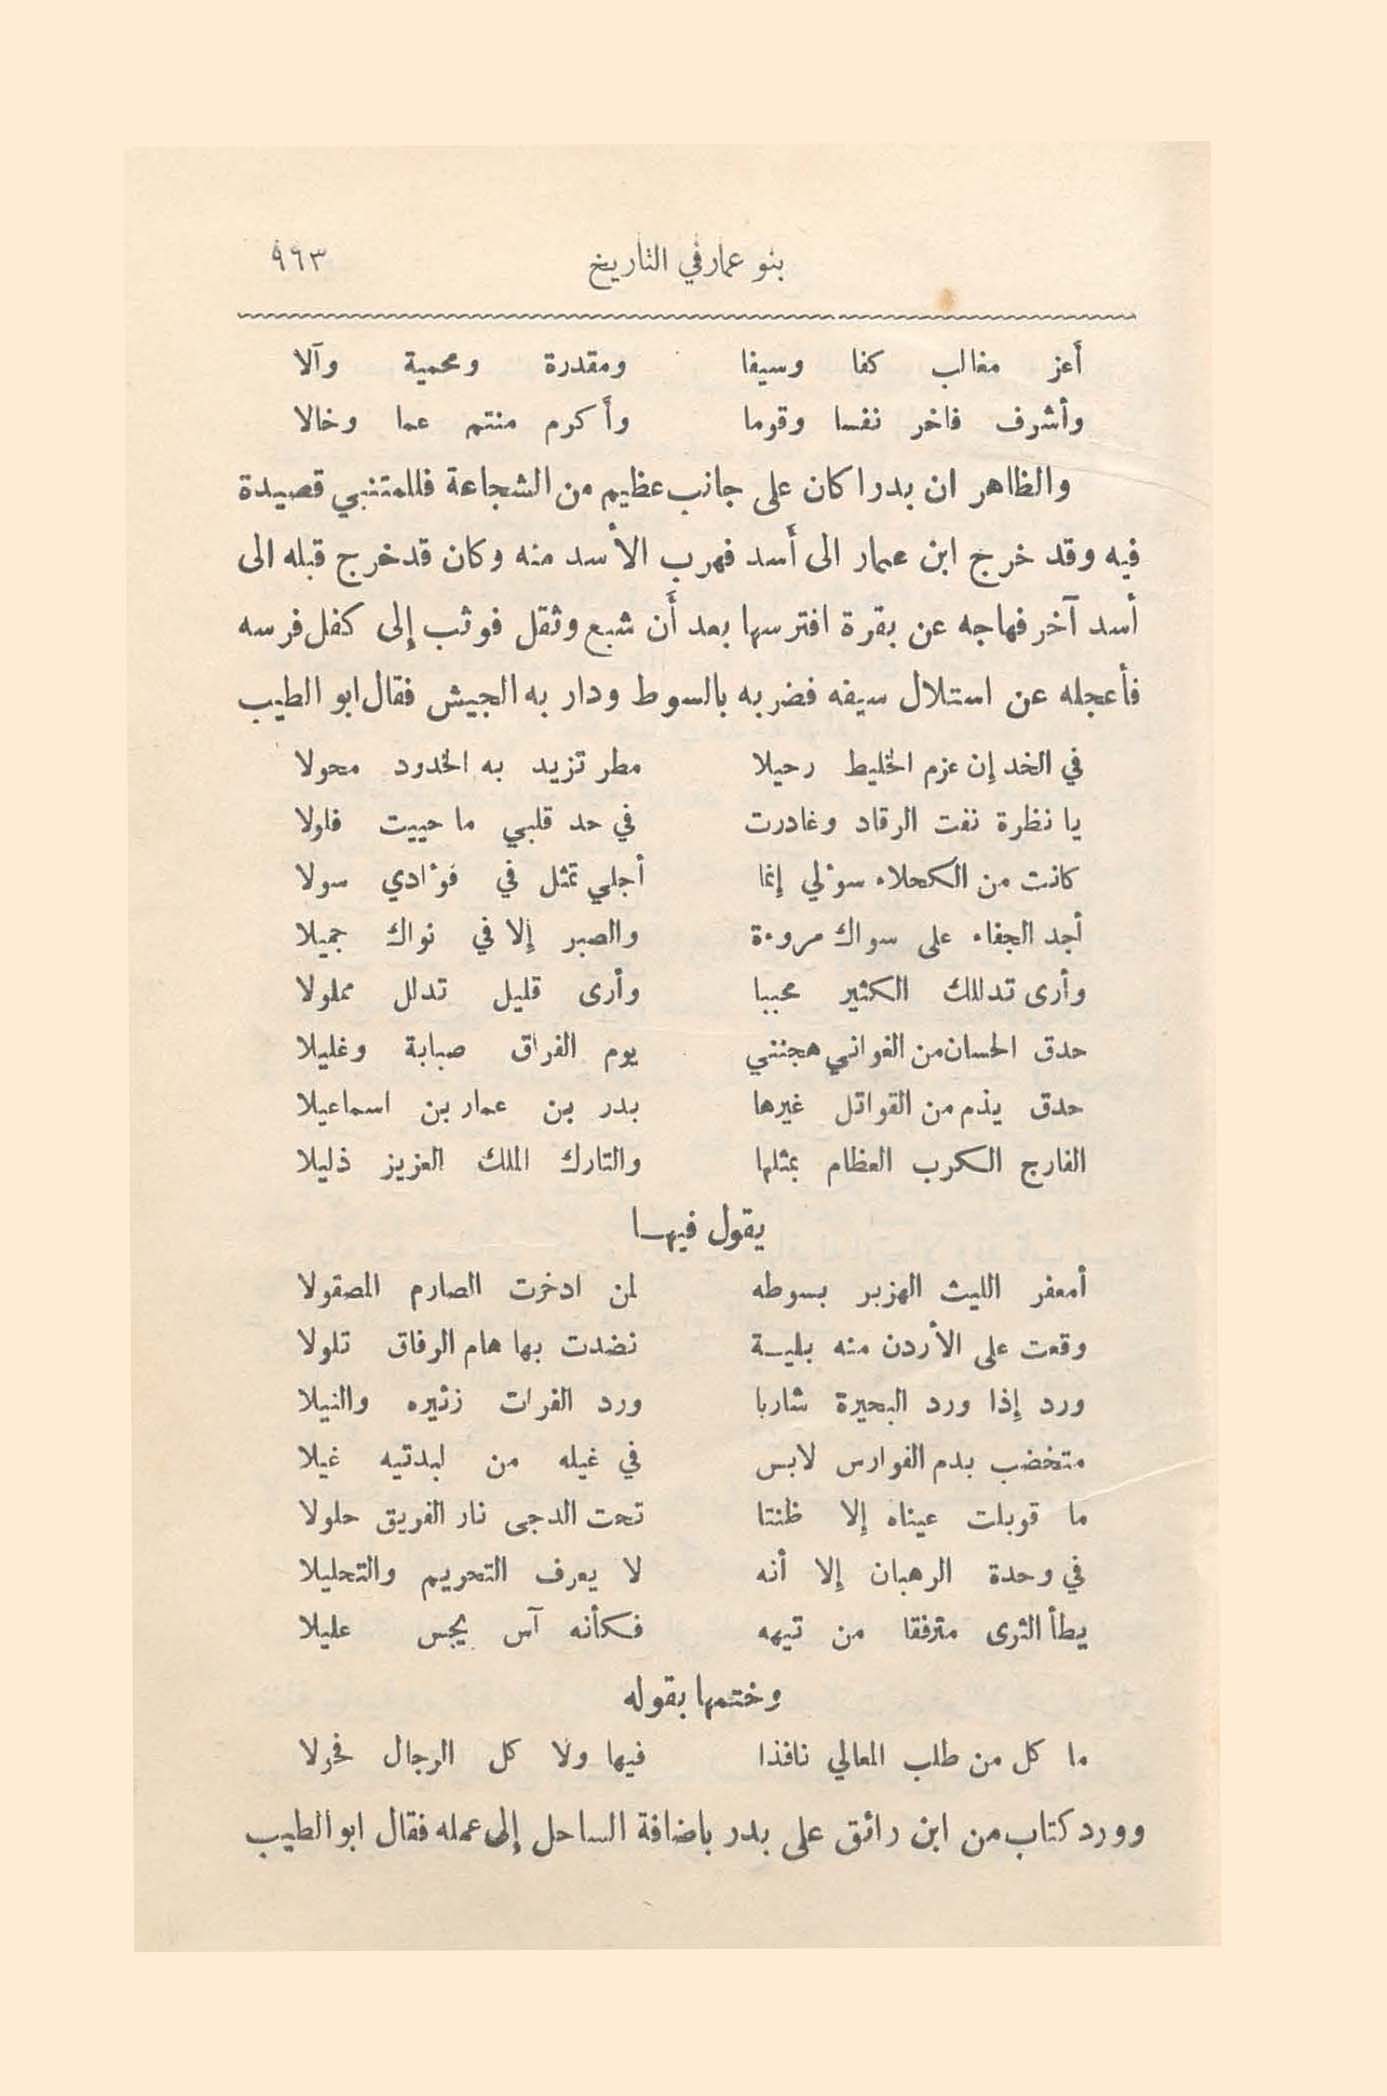 بنو عمار في التاريخ ٩٦٣
أعز مغالب كفا وسيفا ومقدرة ومحمية وآلا
وأشرف فاخر نفسا وقوما وأكرم منتم عما وخالا
والظاهر ان بدرا كان على جانب عظيم من الشجاعة فللمتنبي قصيدة
فيه وقد خرج ابن عمار الى أسد فهرب الأسد منه وكان قد خرج قبله الى
أسد آخر فهاجه عن بقرة افترسها بعد أن شبع وثقل فوثب إلى كفل فرسه
فأعجله عن استلال سيفه فضربه بالسوط ودار به الجيش فقال ابو الطيب
في الخد إن عزم الخليط رحيلا مطر تزيد به الخدود محولا
يا نظرة نفت الرقاد وغادرت في حد قلبي ما حييت فلولا
كانت من الكحلاء سؤلي إنما أجلي تمثل في فؤادي سولا
أجد الجفاء على سواك مروءة والصبر إلا في نواك جميلا
وأرى تدللك الكثير محببا وأرى قليل تدلل مملولا
حدق الحسان من الغواني هجنني يوم الفراق صبابة وغليلا
حدق يذم من القواتل غيرها بدر بن عمار بن اسماعيلا
الفارج الكرب العظام بمثلها والتارك الملك العزيز ذليلا
يقول فيها
أمعفر الليث الهزبر بسوطه لمن ادخرت الصارم المصقولا
وقعت على الأردن منه بلية نضدت بها هام الرفاق تلولا
ورد إذا ورد البحيرة شاربا ورد الفرات زئيره والنيلا
متخضب بدم الفوارس لابس في غيله من لبدتيه غيلا
ما قوبلت عيناه إلا ظنتا تحت الدجى نار الفريق حلولا
في وحدة الرهبان إلا أنه لا يعرف التحريم والتحليلا
يطأ الثرى مترفقا من تيهه فكأنه آس يجس عليلا
وختمها بقوله
ما كل من طلب المعالي نافذا فيها ولا كل الرجال فحولا
وورد كتاب من ابن رائق على بدر باضافة الساحل إلى عمله فقال ابو الطيب